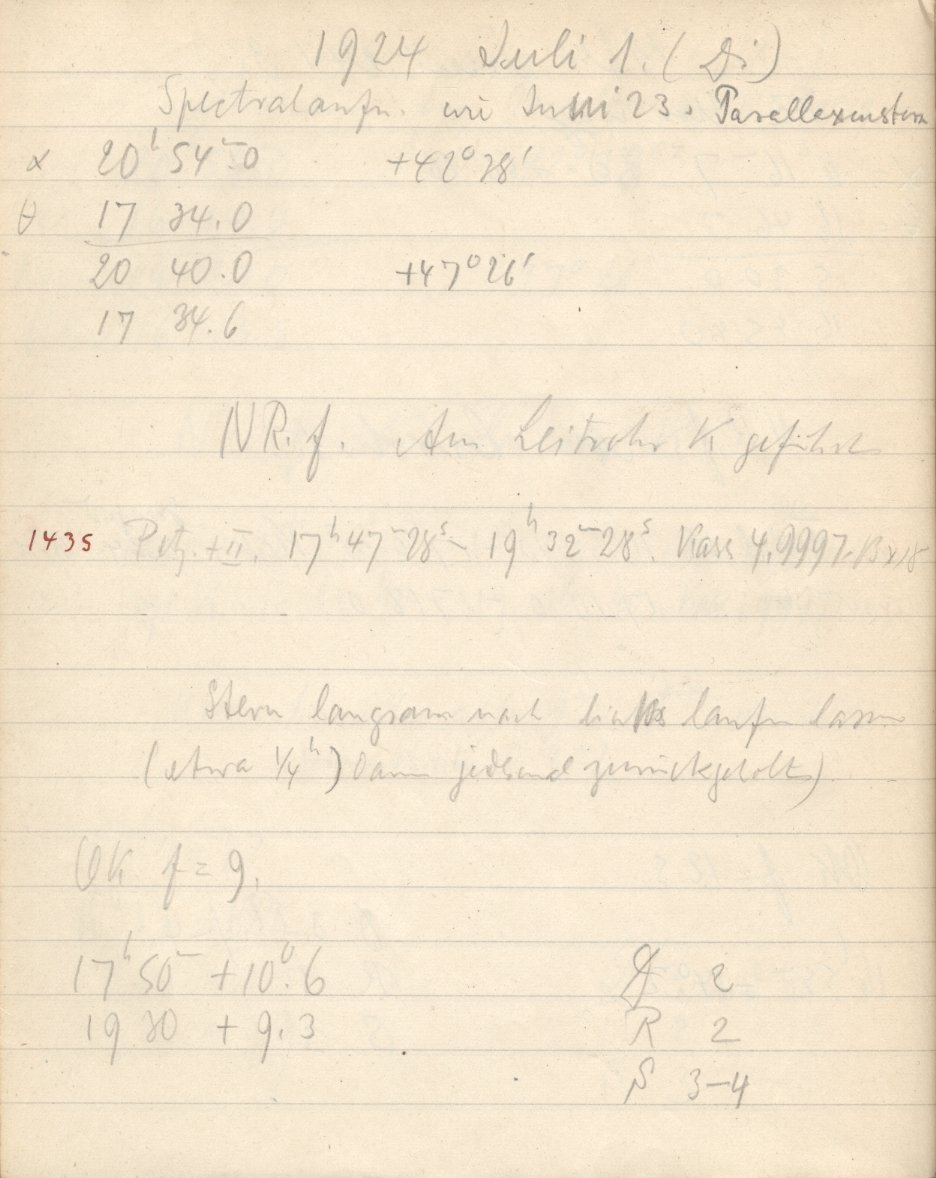 1924 Juli 1. (Di)
Spectralaufn. wie Juni 23. Parallaxenstern
α 20ʰ 54ᵐ0 +42° 28'
θ 17 34.0
20 40.0 +47° 26'
17 34.6
NR. f. Am Leitrohr K geführt
1435 Petz. + II. 17ʰ 47ᵐ 28ˢ – 19ʰ 32ᵐ 28ˢ. Kass 4,9997.
Stern langsam nach links laufen lassen
(etwa 1/4ʰ) Dann jedesmal zurückgeholt)
OK f = 9.
17ʰ 50ᵐ +10°.6 D 2
19 30 + 9.3 R 2
S 3–4